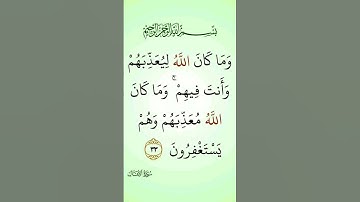 بِسْمِ اللَّهِ الرَّحْمَٰنِ الرَّحِيمِ
وَمَا كَانَ اللَّهُ لِيُعَذِّبَهُمْ
وَأَنتَ فِيهِمْ ۚ وَمَا كَانَ
اللَّهُ مُعَذِّبَهُمْ وَهُمْ
يَسْتَغْفِرُونَ ٣٣
سُورَةُ الأَنفَال